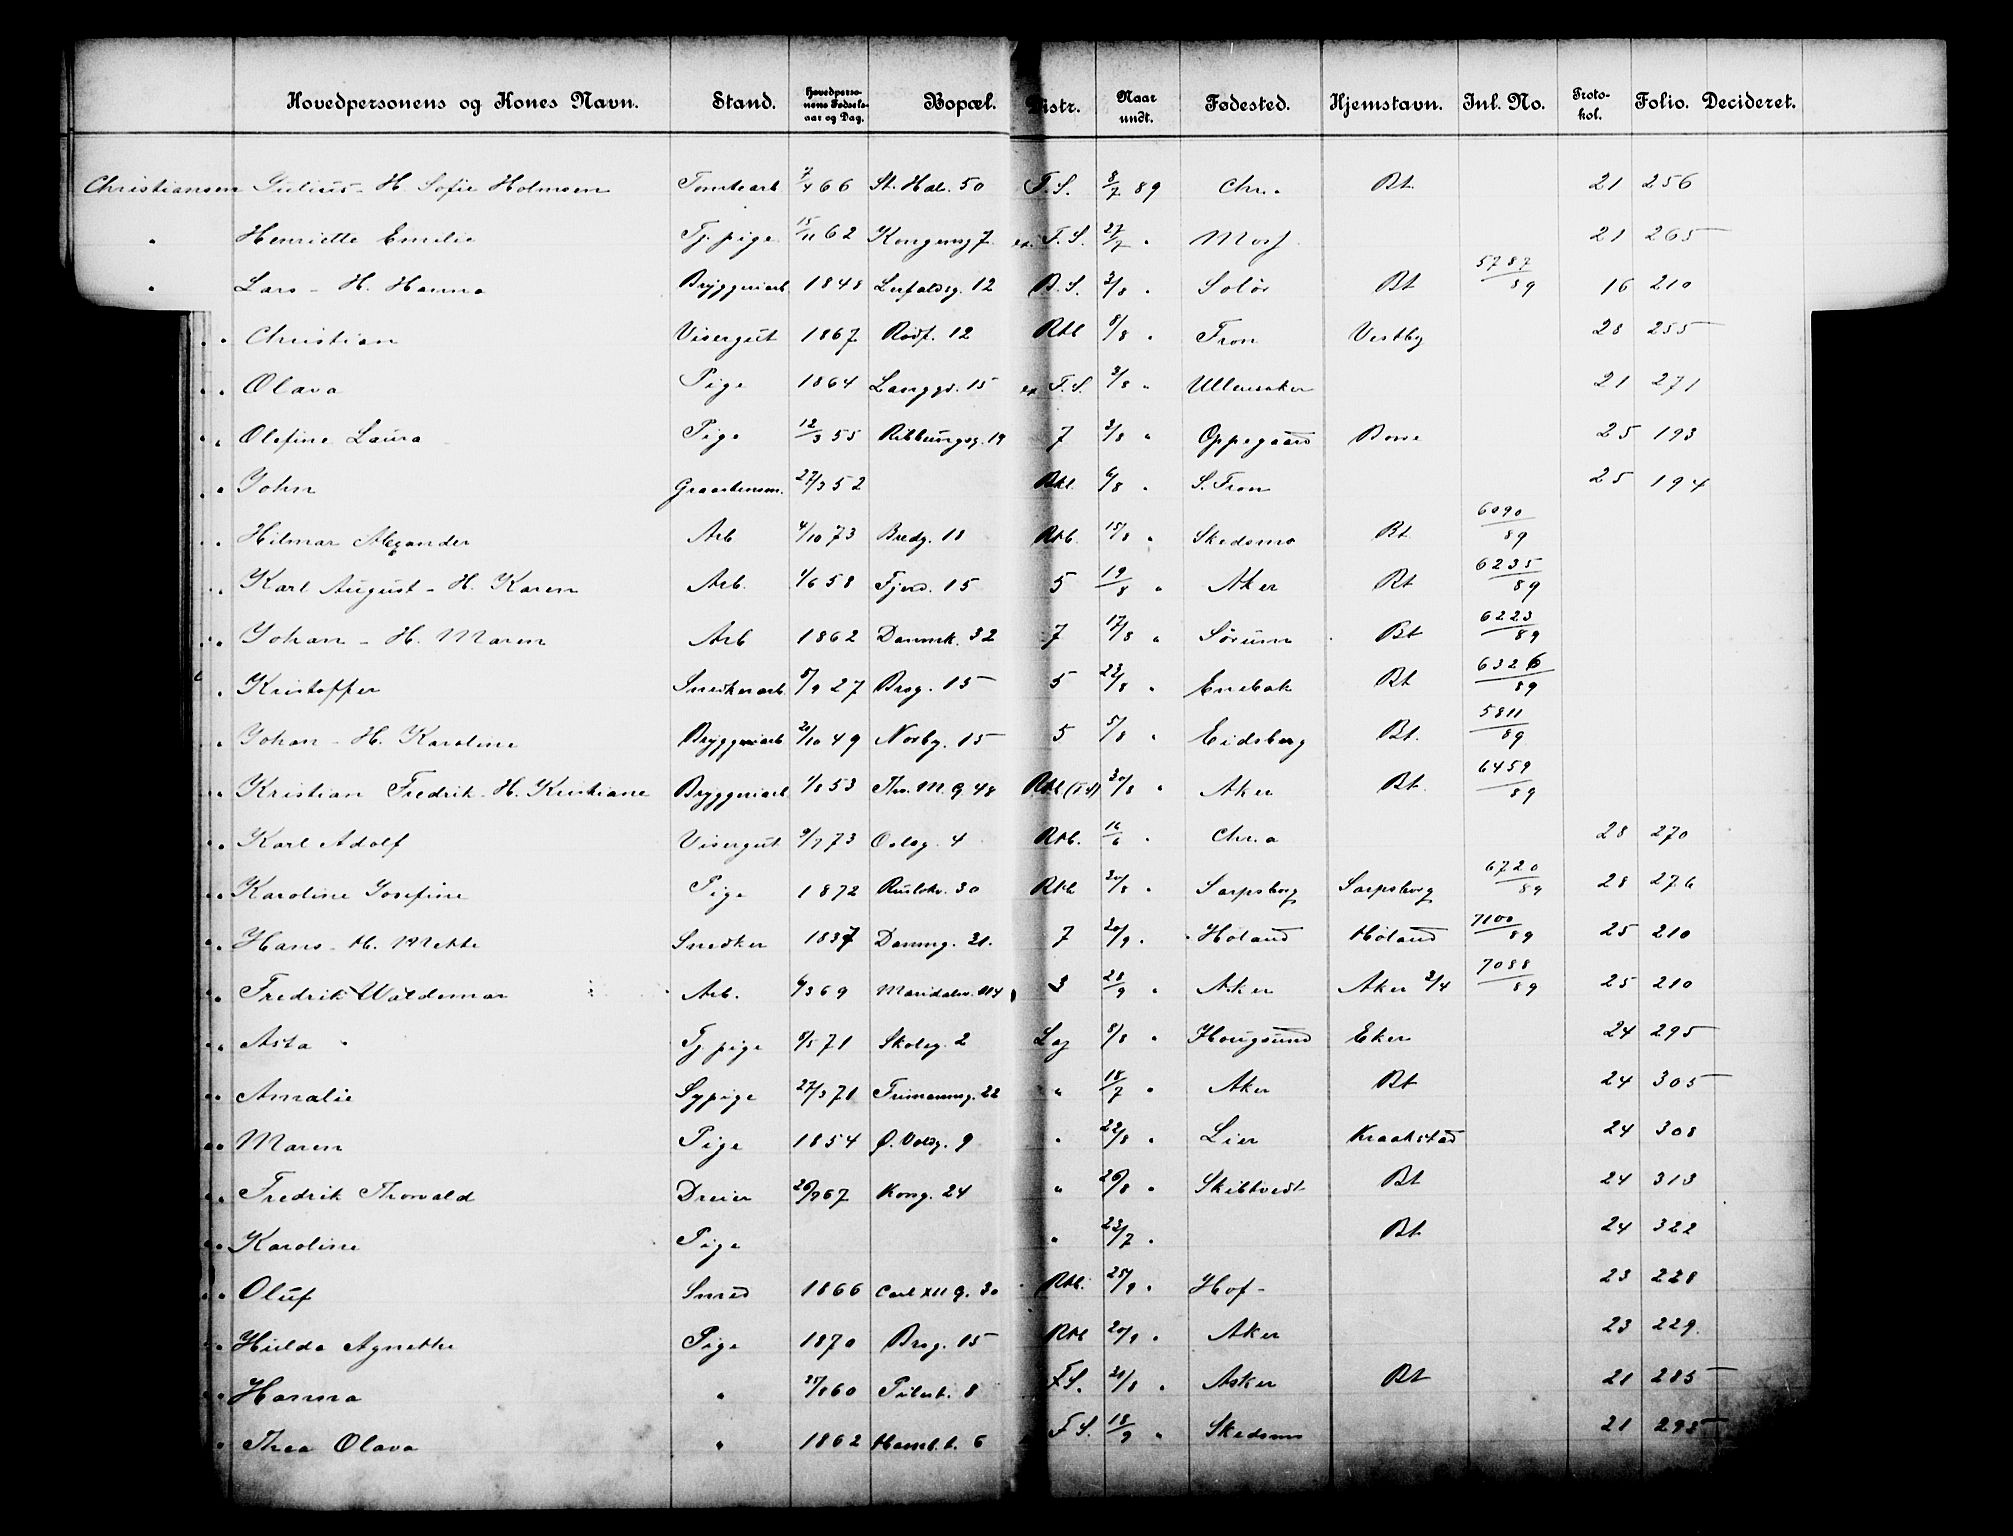 Hovedpersonens og Kones Navn. Stand. Hovedperso-nens Fødsels-aar og Dag. Bopæl. Distr. Naar undt. Fødested. Hjemstavn. Inl. No. Proto-kol. Folio. Decideret.
Christiansen Julius - H. Sofie Holmsen Tomtearb 7/4 66 St. Hal. 50 F. S. 8/7 89 Chr.a Bt. 21 256
" Henriette Emilie Tj. pige 15/11 62 Kongensg 7 F. S. 27/7 " Moss 21 265
" Lars - H. Hanna Bryggeriarb 1848 Lerfaldsg. 12 B. S. 3/8 " Solør Bt 5787/89 16 210
" " Christian Visergut 1867 Rødf. 12 Rtb 8/8 " Fron Vestby 28 255
" " Olava Pige 1864 Langgd. 15 F. S. 3/8 " Ullensaker 21 271
" " Olefine Laura Pige 12/3 55 Ribbungsg. 19 7 3/8 " Oppegaard 25 193
" " John Graastensm. 27/3 52 Rtb. 6/8 " S. Fron 25 194
" " Hilmar Alexander Arb 4/10 73 Bredg. 18 Rtb. 15/8 " Skedsmo Bt. 6090/89
" " Karl August - H. Karen Arb. 1/6 58 Fjerd. 15 5 19/8 " Aker Bt 6235/89
" " Johan - H. Maren Arb 1862 Danmk. 32 7 17/8 " Sørum Bt 6223/89
" Kristoffer Snedkerarb 5/9 27 Brog. 15 5 23/8 " Enebak Bt 6326/89
" " Johan - H. Karoline Bryggeriarb 20/10 49 Norbg. 15 5 5/8 " Eidsberg Bt. 5811/89
" " Kristian Fredrik - H. Kristiane Bryggeriarb 1/8 53 Thv. M. g 48 Rtb (F.S) 30/8 " Aker Bt. 6459/89
" " Karl Adolf Visergut 9/7 73 Oslog. 4 Rtb. 16/6 " Chr.a 28 270
" " Karoline Josefine Pige 1872 Ruseløkv. 30 Rtb 30/8 " Sarpsborg Sarpsborg 6720/89 28 276
" " Hans - H. Mette Snedker 1837 Danmg. 31. 7 20/9 " Høland Høland 7100/89 25 210
" " Fredrik Waldemar Arb. 6/3 69 Maridalsv. 114 3 28/9 " Aker Aker 2/4 7088/89 25 210
" " Asta Tj. pige 8/5 71 Skoleg. 2 Log 8/8 " Hougsund Eker 24 295
" " Amalie Sypige 27/3 71 Trimannsg. 22 " 18/7 " Aker Bt 24 305
" " Maren Pige 1854 Ø. Voldg. 9 " 22/8 " Lier Kraakstad 24 308
" " Fredrik Thorvald Dreier 26/9 67 Kong. 24 " 26/8 " Skibtvedt Bt 24 313
" " Karoline Pige " 23/7 " Bt 24 322
" " Oluf Smed 1866 Carl XII g. 30 Rtb. 25/9 " Hof - 23 228
" " Hulda Agnethe Pige 1870 Brog. 15 Rtb 20/9 " Aker 23 229
" " Hanna " 21/8 60 Pilest. 8 F.S. 21/8 " Asker Bt 21 285
" Thea Olava " 1862 Hamb.t. 6 F.S. 18/9 " Skedsmo 21 295